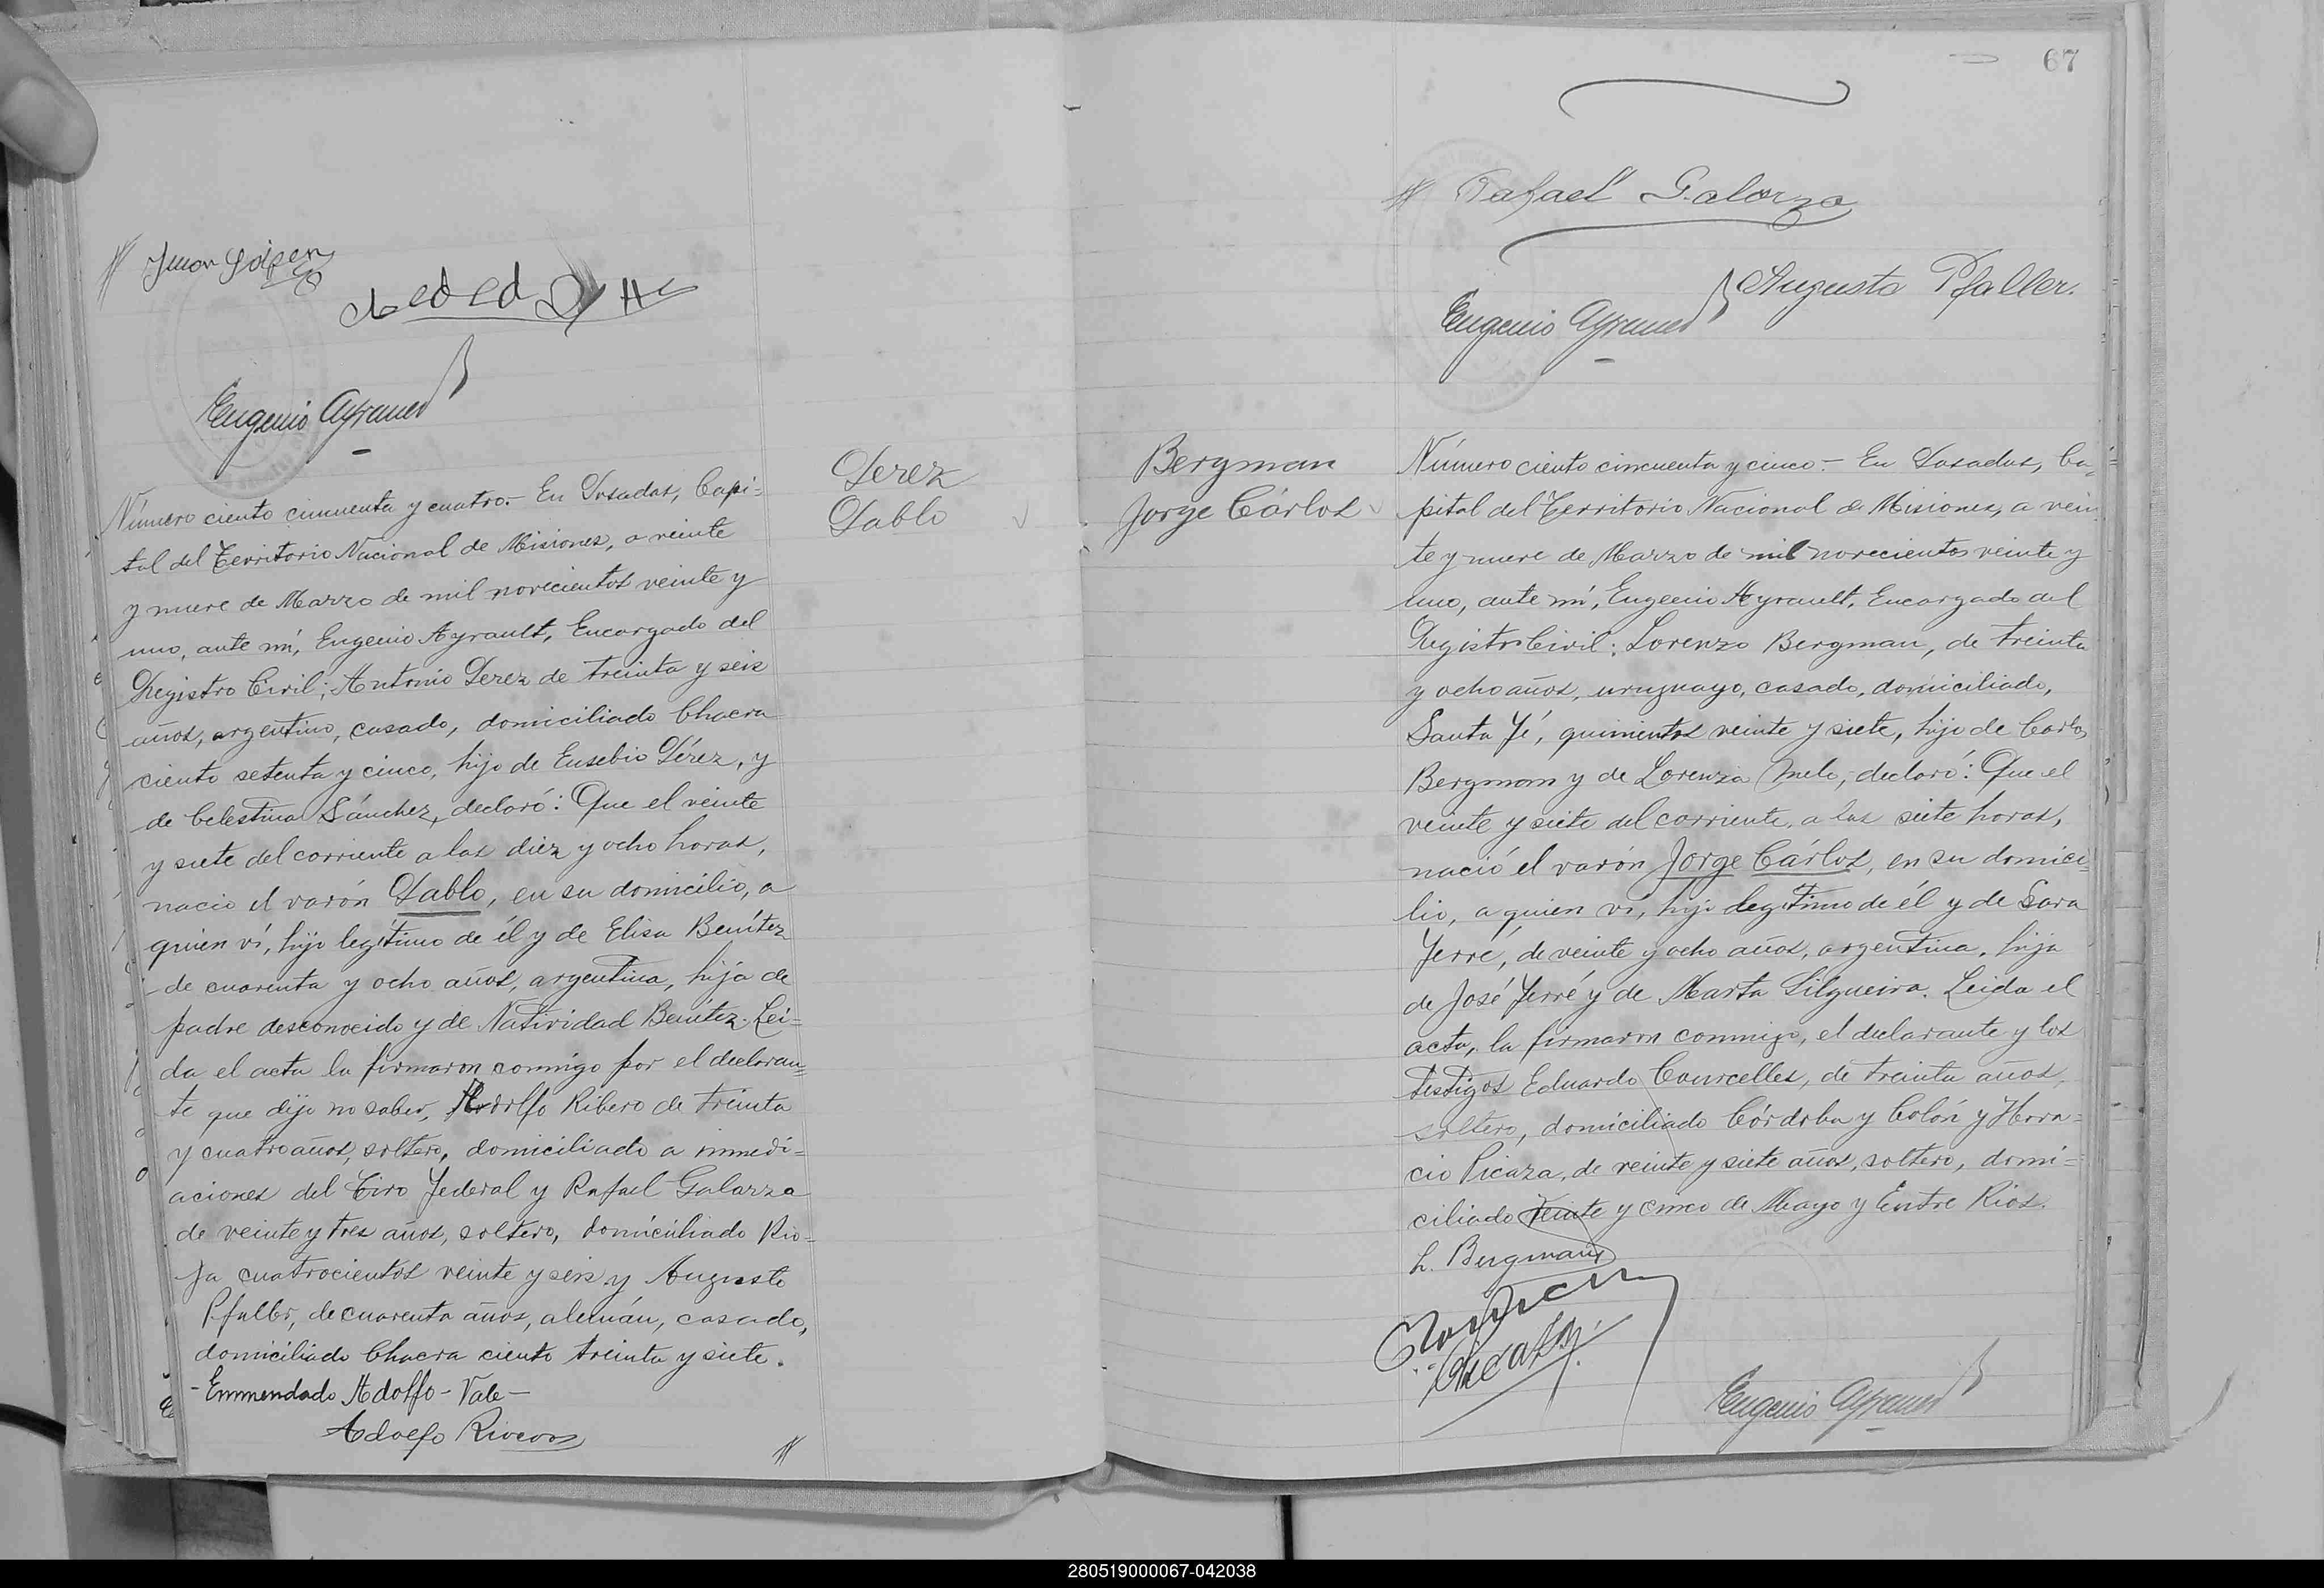 Eugenio Ayrault
Perez
Pablo
Número ciento cincuenta y cuatro.- En Posadas, Capi=
tal del Territorio Nacional de Misiones, a veinte
y nueve de Marzo de mil novecientos veinte y
uno, ante mí, Eugenio Ayrault, Encargado del
Registro Civil; Antonio Perez de treinta y seis
años, argentino, casado, domiciliado Chacra
ciento setenta y cinco, hijo de Eusebio Pérez, y
de Celestina Sánchez, declaró: Que el veinte
y siete del corriente a las diez y ocho horas,
nació el varón Pablo, en su domicilio, a
quien ví, hijo legítimo de él y de Elisa Benítez
de cuarenta y ocho años, argentina, hija de
padre desconocido y de Natividad Benítez. Lei=
da el acta la firmaron conmigo por el declaran=
te que dijo no saber, Adolfo Ribero de treinta
y cuatro años, soltero, domiciliado a inmedi=
aciones del Tiro Federal y Rafael Galarza
de veinte y tres años, soltero, domiciliado Rio=
ja cuatrocientos veinte y seis y Augusto
Pfaller, de cuarenta años, alemán, casado,
domiciliado Chacra ciento treinta y siete.
- Enmendado Adolfo - Vale -
Adolfo Riveros
67
Rafael Galarza
Augusto Pfaller.
Eugenio Ayrault
Bergman
Jorge Cárlos
Número ciento cincuenta y cinco.- En Posadas, Ca=
pital del Territorio Nacional de Misiones, a vein
te y nueve de Marzo de mil novecientos veinte y
uno, ante mí, Eugenio Ayrault, Encargado del
Registro Civil; Lorenzo Bergman, de treinta
y ocho años, uruguayo, casado, domiciliado,
Santa Fé, quinientos veinte y siete, hijo de Carlos
Bergman y de Lorenza Melo, declaró: Que el
veinte y siete del corriente, a las siete horas,
nació el varón Jorge Cárlos, en su domici=
lio, a quien ví, hijo legítimo de él y de Sara
Ferré, de veinte y ocho años, argentina, hija
de José Ferré y de Marta Silgueira. Leida el
acta, la firmaron conmigo, el declarante y los
testigos Eduardo Courcelles, de treinta años,
soltero, domiciliado Córdoba y Colón y Hora=
cio Picaza, de veinte y siete años, soltero, domi=
ciliado Veinte y cinco de Mayo y Entre Rios.
L. Bergman
Eugenio Ayrault
280519000067-042038